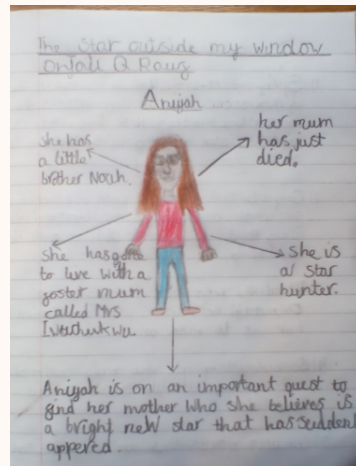 The star outside my window
Onjali Q Rauf
Aniyah
she has
a little
brother Noah.
her mum
has just
died.
she has gone
to live with a
foster mum
called Mrs
Iwuchukwu.
she is
a star
hunter.
Aniyah is on an important quest to
find her mother who she believes is
a bright new star that has sudden
appered.